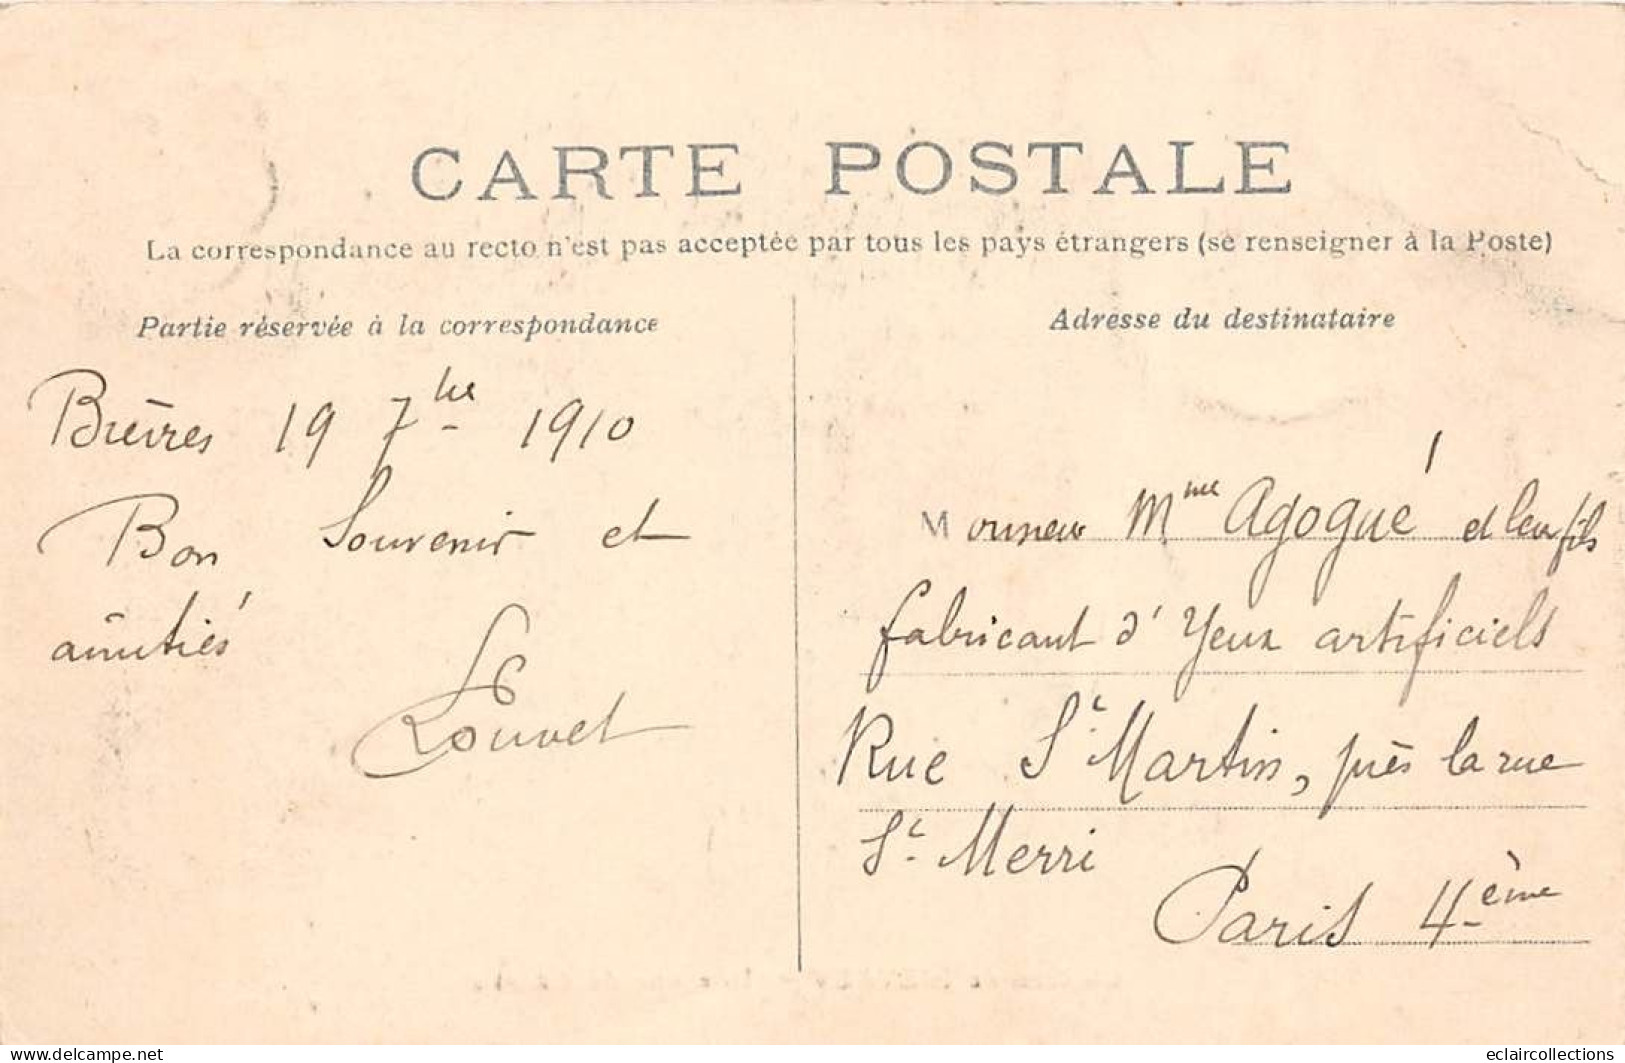 CARTE POSTALE
La correspondance au recto n'est pas acceptée par tous les pays étrangers (se renseigner à la Poste)
Partie réservée à la correspondance
Bièvres 19 7bre 1910
Bon Souvenir et
amitiés
Louvet
Adresse du destinataire
Monsieur Mme Agogué et leur fils
fabricant d'Yeux artificiels
Rue St Martin, près la rue
St Merri
Paris 4ème
eclaircollections